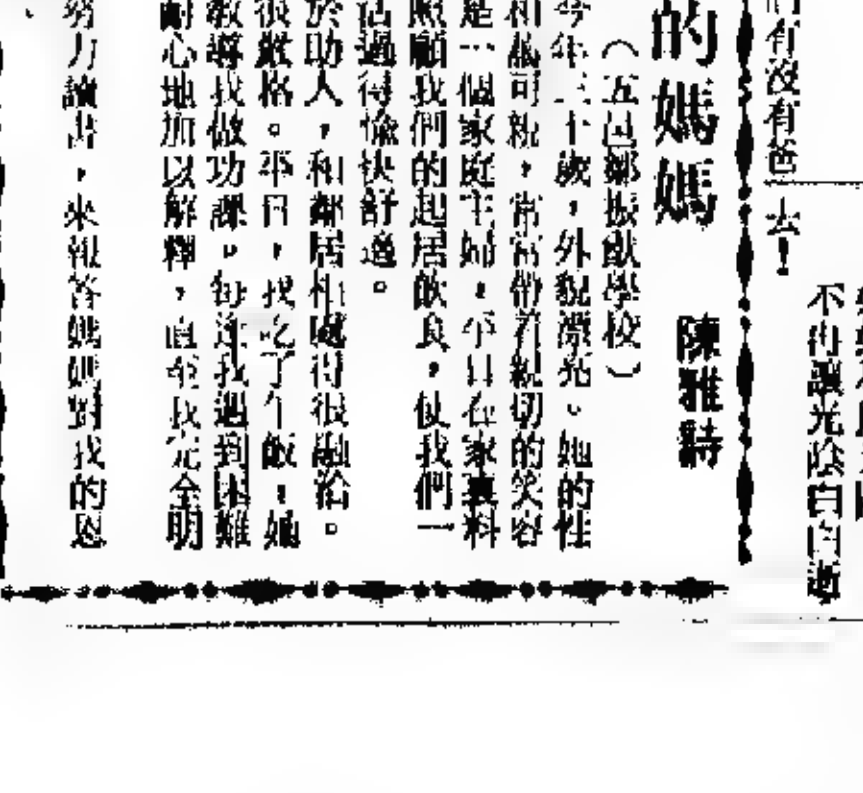 們有沒有爸
去！
不再讓光陰白白逝
的媽媽
陳雅詩
（五邑鄒振猷學校）
今年三十歲，外貌漂亮。她的性
和藹可親，常常帶着親切的笑容
是一個家庭主婦，平日在家裏料
照顧我們的起居飲食，使我們一
活過得愉快舒適。
於助人，和鄰居相處得很融洽。
很嚴格。平日，我吃了午飯，她
教導我做功課。每逢我遇到困難
耐心地加以解釋，直至我完全明
努力讀書，來報答媽媽對我的恩